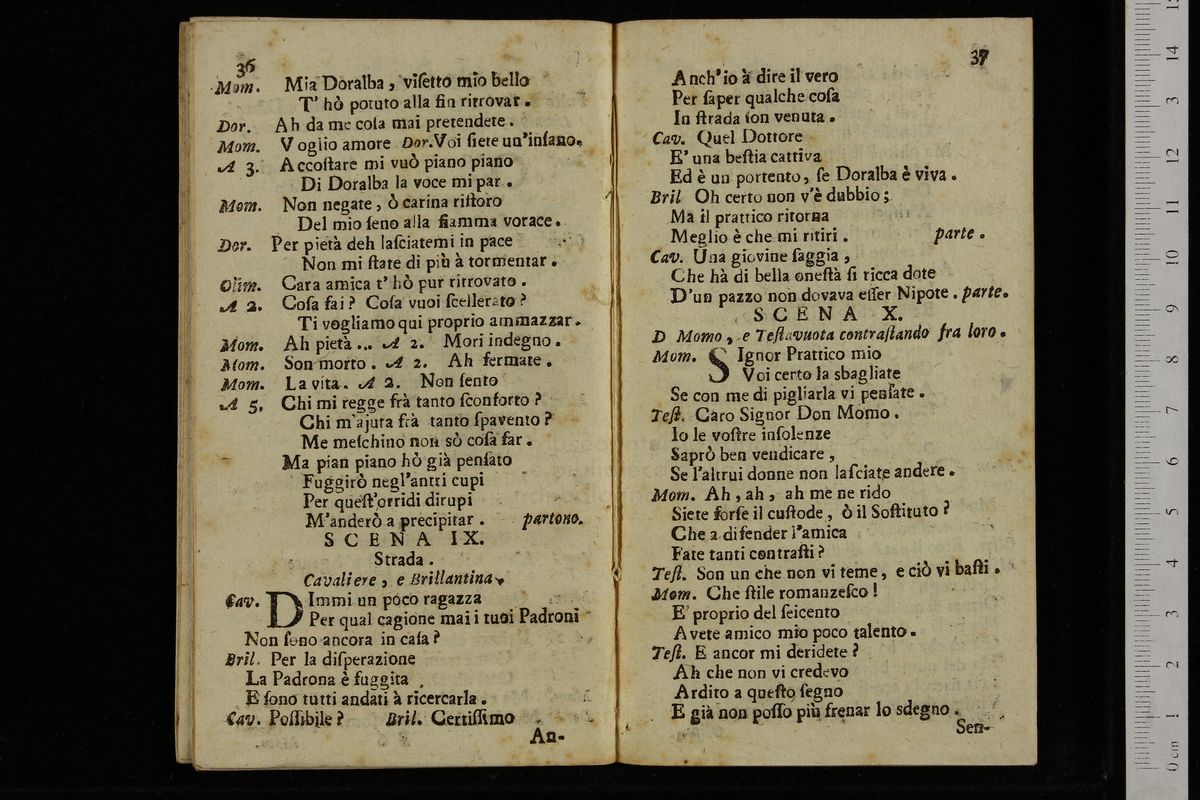 36
Mom. Mia Doralba, viſetto mio bello
T' hò potuto alla fin rirrovar.
Dor. Ah da me coſa mai pretendete.
Mom. Voglio amore Dor. Voi ſiete un'inſano.
A 3. Accoſtare mi vuò piano piano
Di Doralba la voce mi par.
Mom. Non negate, ò carina riſtoro
Del mio ſeno alla fiamma vorace.
Dor. Per pietà deh laſciatemi in pace
Non mi ſtate di più à tormentar.
Olim. Cara amica t' hò pur rirrovato.
A 2. Coſa fai? Coſa vuoi ſcellerato?
Ti vogliamo qui proprio ammazzar.
Mom. Ah pietà... A 2. Mori indegno.
Mom. Son morto. A 2. Ah fermate.
Mom. La vita. A 2. Non ſento
A 5. Chi mi regge frà tanto ſconforto?
Chi m'ajuta frà tanto ſpavento?
Me meſchino non sò coſa far.
Ma pian piano hò già penſato
Fuggirò negl'antri cupi
Per queſt'orridi dirupi
M'anderò a precipitar. partono.
SCENA IX.
Strada.
Cavaliere, e Brillantina.
Cav. DImmi un poco ragazza
Per qual cagione mai i tuoi Padroni
Non ſono ancora in caſa?
Bril. Per la diſperazione
La Padrona è fuggita
E ſono tutti andati à ricercarla.
Cav. Poſſibile? Bril. Certiſſimo
An-
37
Anch'io à dire il vero
Per ſaper qualche coſa
In ſtrada ſon venuta.
Cav. Quel Dottore
E' una beſtia cattiva
Ed è un portento, ſe Doralba è viva.
Bril Oh certo non v'è dubbio;
Ma il prattico ritorna
Meglio è che mi ritiri. parte.
Cav. Una giovine ſaggia,
Che hà di bella oneſtà ſi ricca dote
D'un pazzo non dovava eſſer Nipote. parte.
SCENA X.
D Momo, e Teſtavuota contraſtando fra loro.
Mom. SIgnor Prattico mio
Voi certo la sbagliate
Se con me di pigliarla vi penſate.
Teſt. Caro Signor Don Momo.
Io le voſtre inſolenze
Saprò ben vendicare,
Se l'altrui donne non laſciate andere.
Mom. Ah, ah, ah me ne rido
Siete forſe il cuſtode, ò il Soſtituto?
Che a difender l'amica
Fate tanti contraſti?
Teſt. Son un che non vi teme, e ciò vi baſti.
Mom. Che ſtile romanzeſco!
E' proprio del ſeicento
Avete amico mio poco talento.
Teſt. E ancor mi deridete?
Ah che non vi credevo
Ardito a queſto ſegno
E già non poſſo più frenar lo sdegno.
Sen-